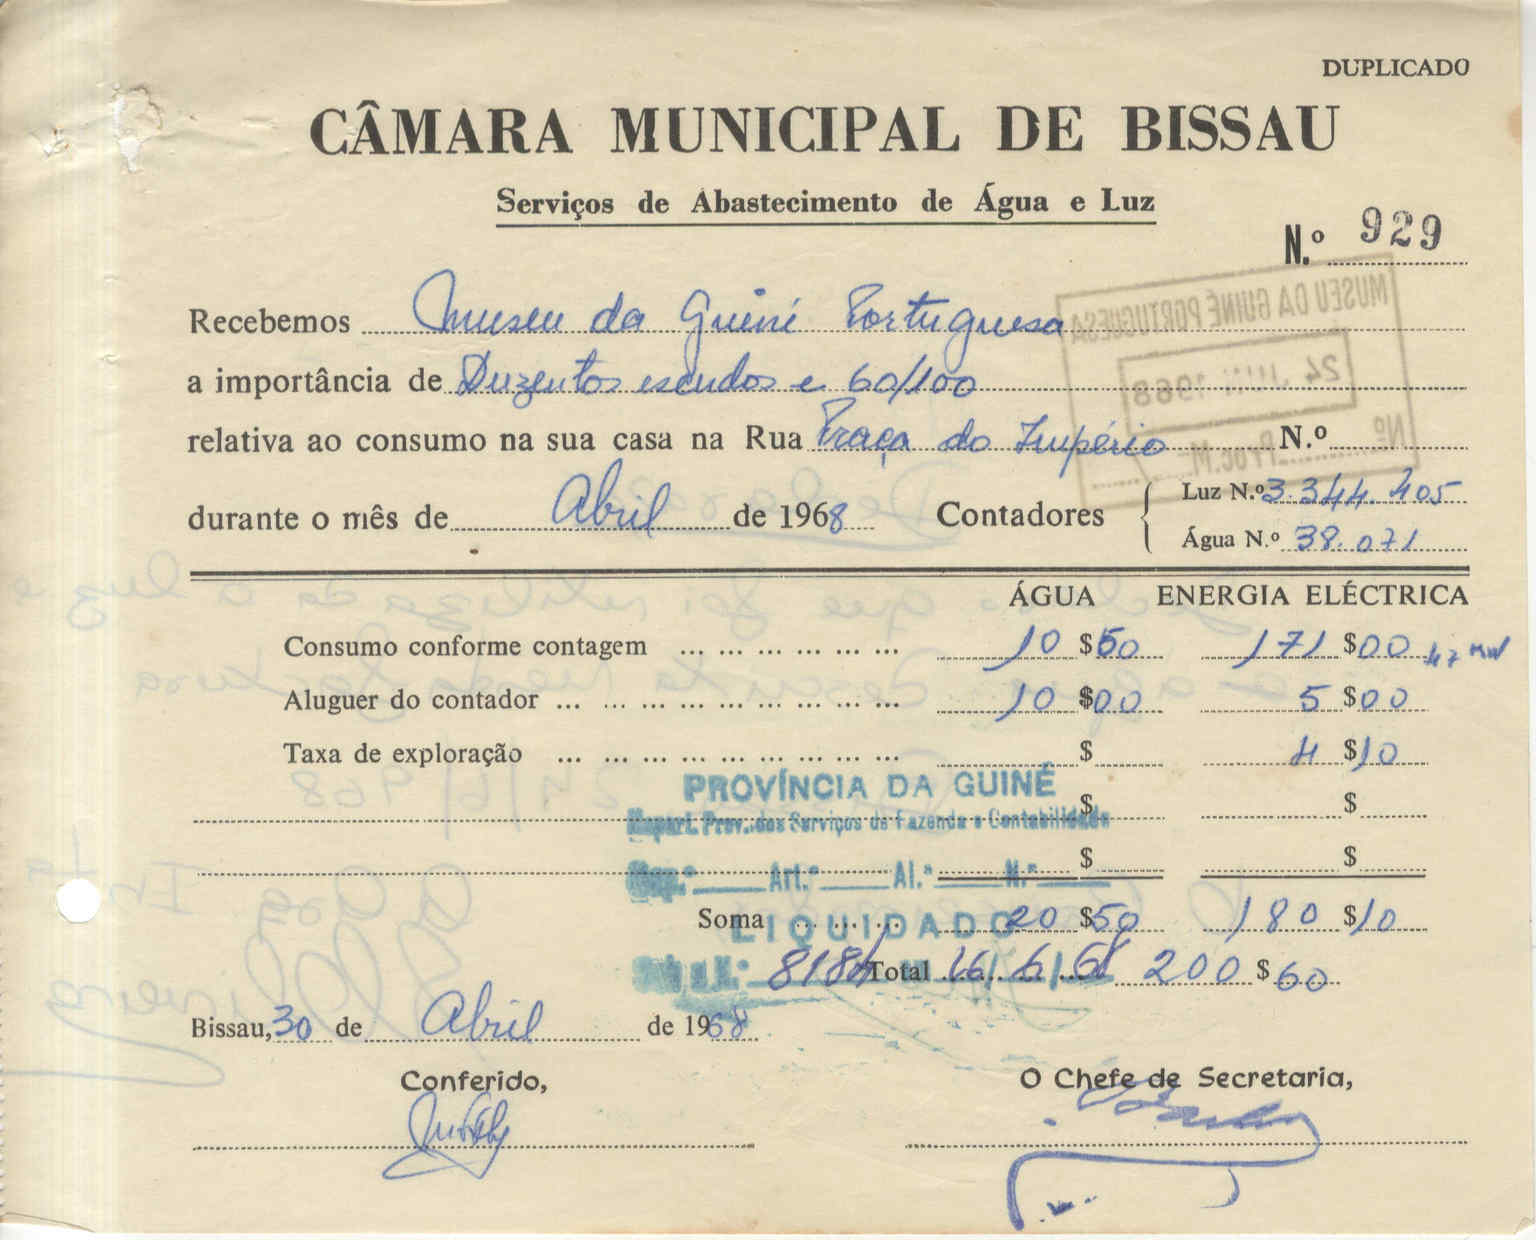 DUPLICADO
CÂMARA MUNICIPAL DE BISSAU
Serviços de Abastecimento de Água e Luz
N.º 929
MUSEU DA GUINÉ PORTUGUESA
24 JUN 1968
Nº Proc.
Recebemos Museu da Guiné Portuguesa
a importância de Duzentos escudos e 60/100
relativa ao consumo na sua casa na Rua Praça do Império N.º
durante o mês de Abril de 1968 Contadores
Luz N.º 3.344.405
Água N.º 38.071
ÁGUA ENERGIA ELÉCTRICA
Consumo conforme contagem ... ... ... ... ... ... 10 $50 171 $00
Aluguer do contador ... ... ... ... ... ... ... ... 10 $00 5 $00
Taxa de exploração ... ... ... ... ... ... ... ... $ 4 $10
$ $
$ $
PROVÍNCIA DA GUINÉ
Repart. Prov. dos Serviços de Fazenda e Contabilidade
Cap.º Art.º Al.ª N.º
Soma ... ... ... 20 $50 180 $10
LIQUIDADO
Total 200 $60
Bissau, 30 de Abril de 1968
Conferido, O Chefe de Secretaria,